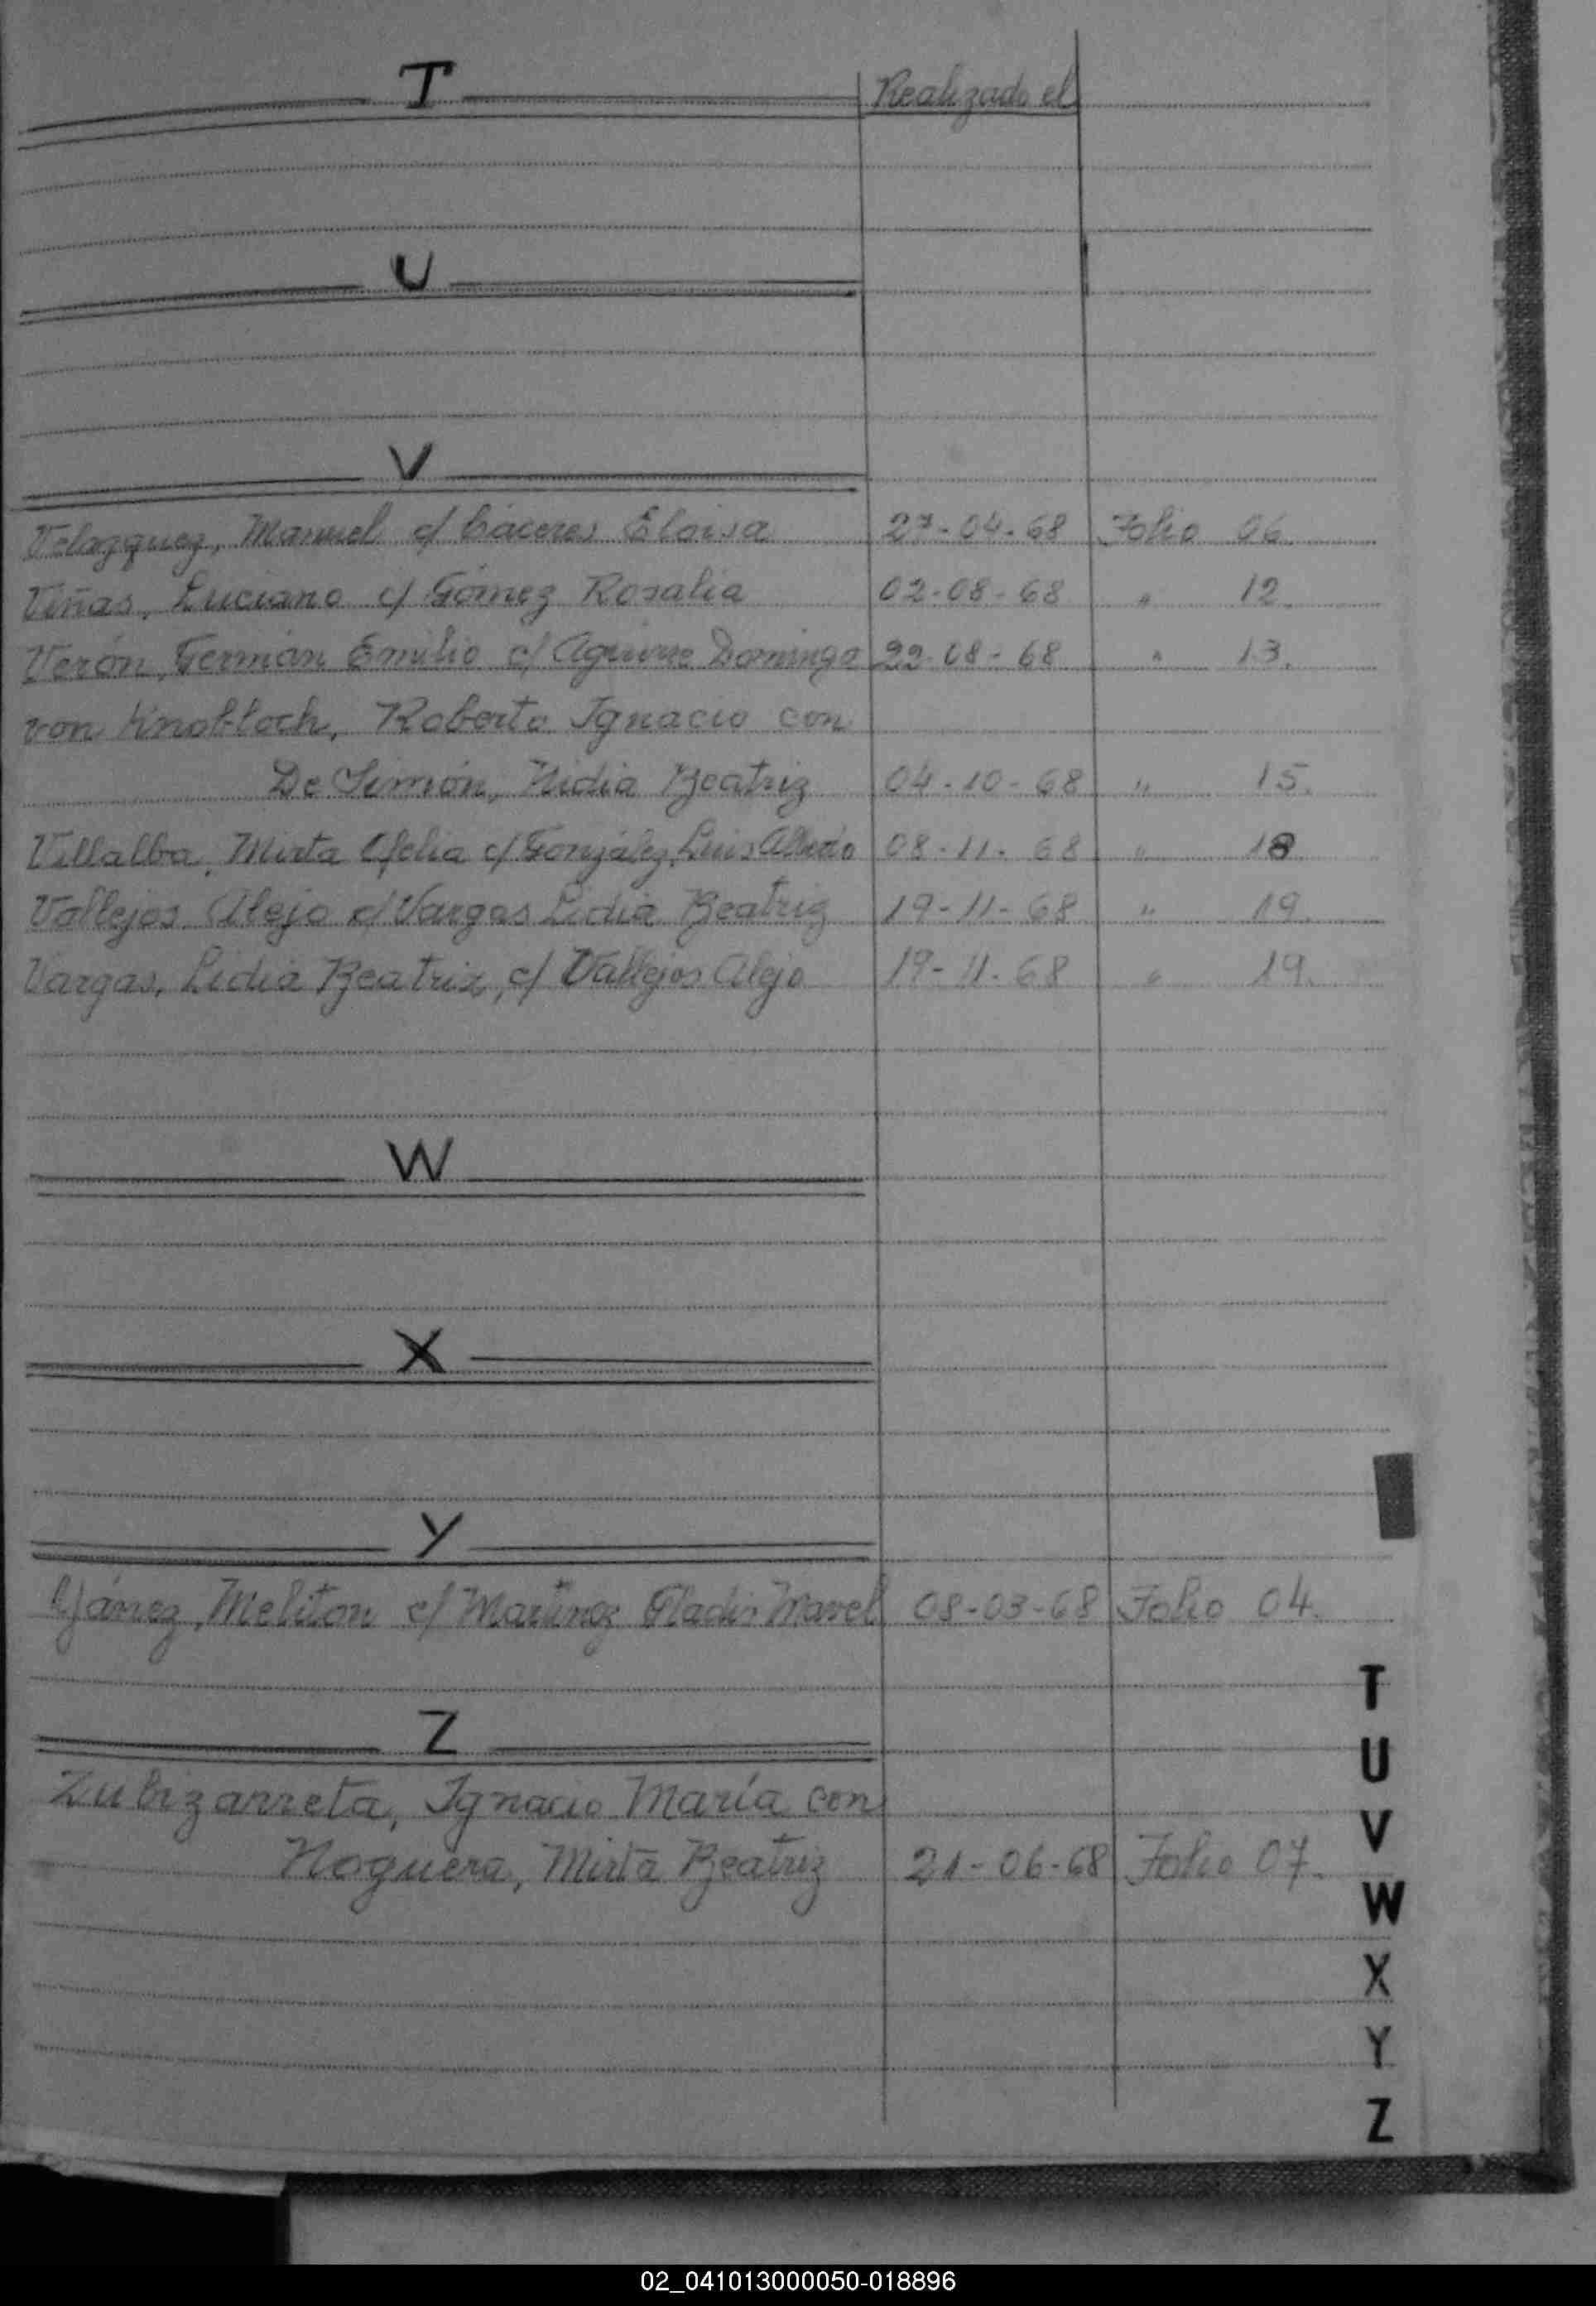 T Realizado el
U
V
Velazquez, Manuel c/ Cáceres Eloisa 27-04-68 Folio 06.
Viñas, Luciano c/ Gómez Rosalia 02-08-68 " 12.
Verón, Germán Emilio c/ Aguirre Dominga 22-08-68 " 13.
von Knobloch, Roberto Ignacio con
De Simón, Nidia Beatriz 04-10-68 " 15.
Villalba, Mirta Ofelia c/ González, Luis 08-11-68 " 18
Vallejos Alejo c/ Vargas Lidia Beatriz 19-11-68 " 19.
Vargas, Lidia Beatriz, c/ Vallejos Alejo 19-11-68 " 19.
W
X
Y
Yánez, Meliton c/ Martinez Gladis Mavel 08-03-68 Folio 04.
Z
Zubizarreta, Ignacio María con
Noguera, Mirta Beatriz 21-06-68 Folio 07.
T
U
V
W
X
Y
Z
02_041013000050-018896